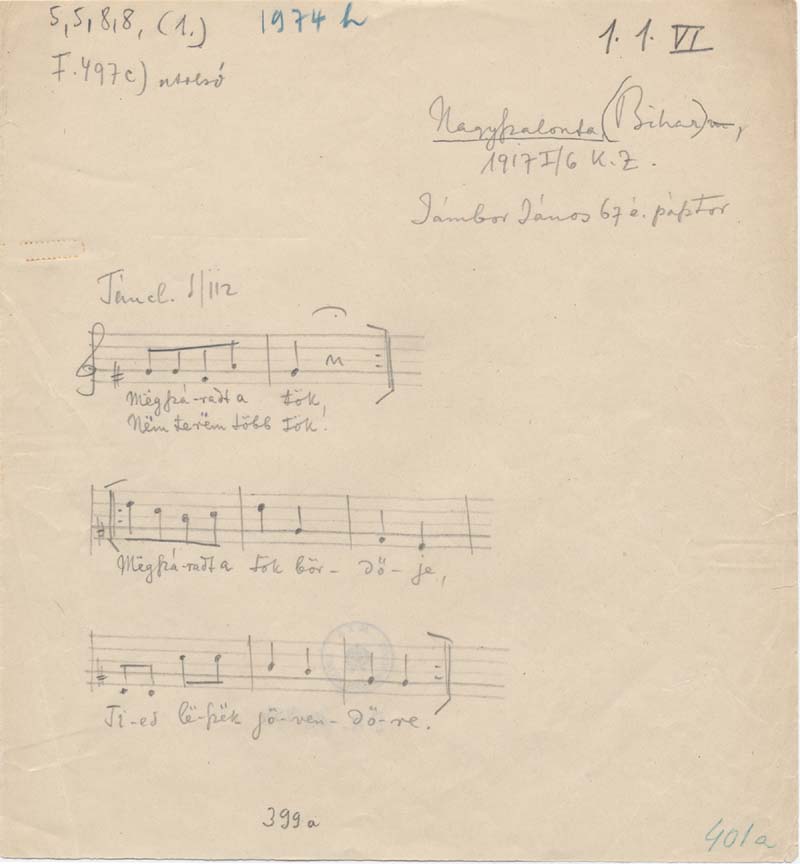 5,5,8,8, (1.) 1974 h
1. 1. VI
F. 497c) utolsó
Nagyszalonta (Bihar),
1917 I/6 K.Z.
Jámbor János 67 é. pásztor
Táncl.
Mëgszá-radt a tök,
Nëm terëm több tök!
Mëgszá-radt a tök bör-dő-je,
Ti-ed lë-szëk jö-ven-dő-re.
399a
401a